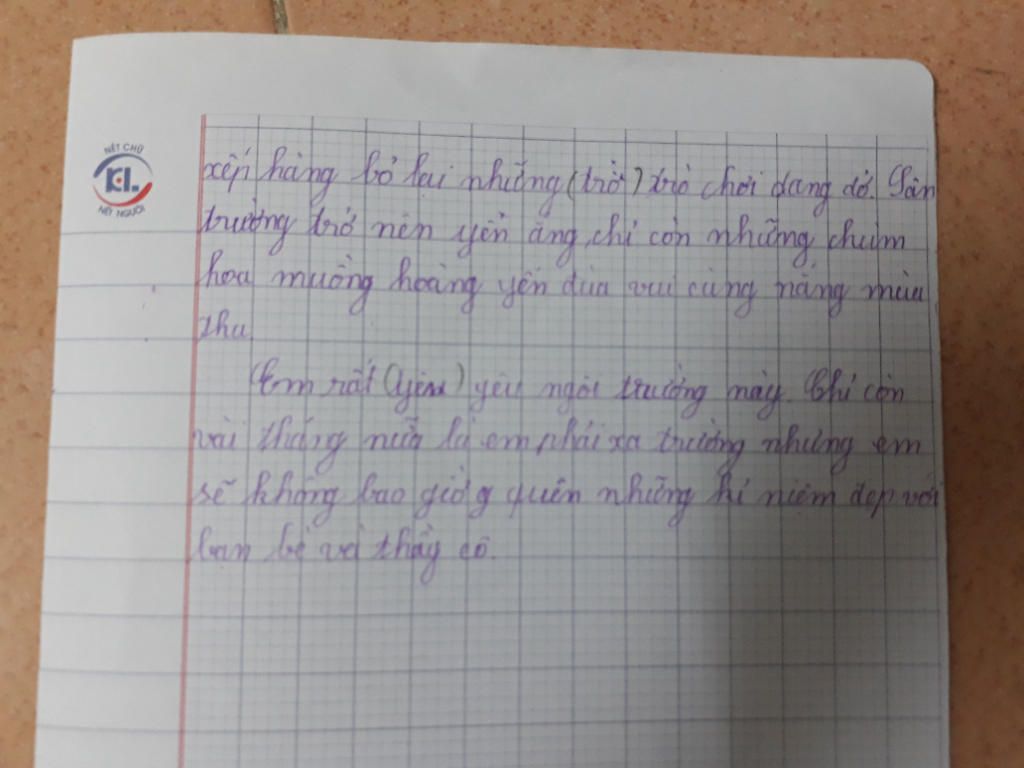 NÉT CHỮ
KL
NẾT NGƯỜI
xếp hàng bỏ lại những (trở) trò chơi dang dở. Sân
trường trở nên yên ắng, chỉ còn những chùm
hoa muồng hoàng yến đùa vui cùng nắng mùa
thu.
Em rất (yêu) yêu ngôi trường này. Chỉ còn
vài tháng nữa là em phải xa trường nhưng em
sẽ không bao giờ quên những kỉ niệm đẹp với
bạn bè và thầy cô.